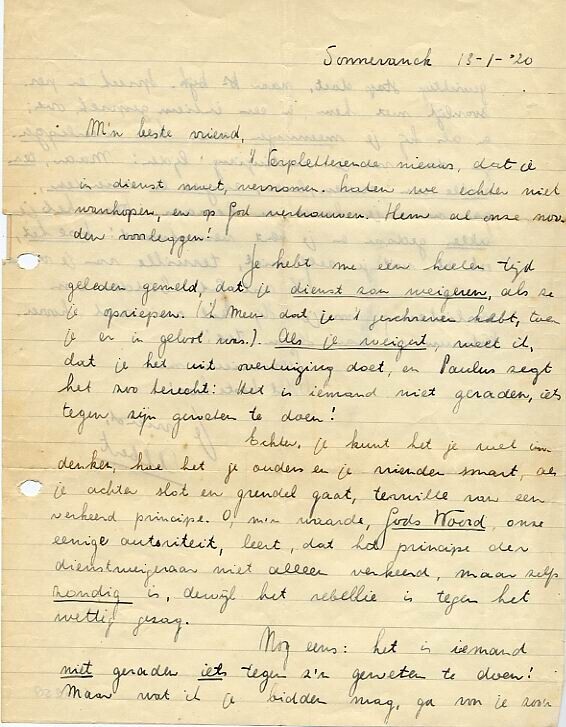 Sonnevanck 13-1-'20
M'n beste vriend,
't Verpletterende nieuws, dat je
in dienst moet, vernomen. Laten we echter niet
wanhopen, en op God vertrouwen. Hem al onze noo-
den voorleggen!
Je hebt me een heelen tijd
geleden gemeld, dat je dienst zou weigeren, als ze
je opriepen. ('k Meen dat je 't geschreven hebt, toen
je er in geloot was.). Als je weigert, weet ik,
dat je het uit overtuiging doet, en Paulus zegt
het zoo terecht: Het is iemand niet geraden, iets
tegen zijn geweten te doen!
Echter, je kunt het je wel in-
denken, hoe het je ouders en je vrienden smart, als
je achter slot en grendel gaat, terwille van een
verkeerd principe. O, m'n waarde, Gods Woord, onze
eenige autoriteit, leert, dat het principe der
dienstweigeraar niet alleen verkeerd, maar zelfs
zondig is, dewijl het rebellie is tegen het
wettig gezag.
Nog eens: het is iemand
niet geraden iets tegen z'n geweten te doen!
Maar wat ik je bidden mag, ga voor je zoo'n